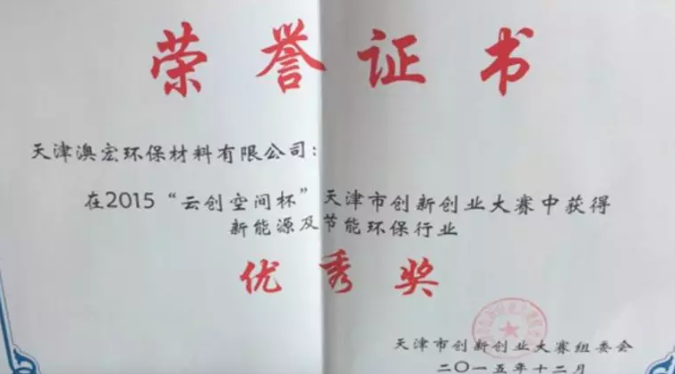 荣誉证书
天津澳宏环保材料有限公司：
在2015“云创空间杯”天津市创新创业大赛中获得
新能源及节能环保行业
优秀奖
天津市创新创业大赛组委会
二〇一五年十二月